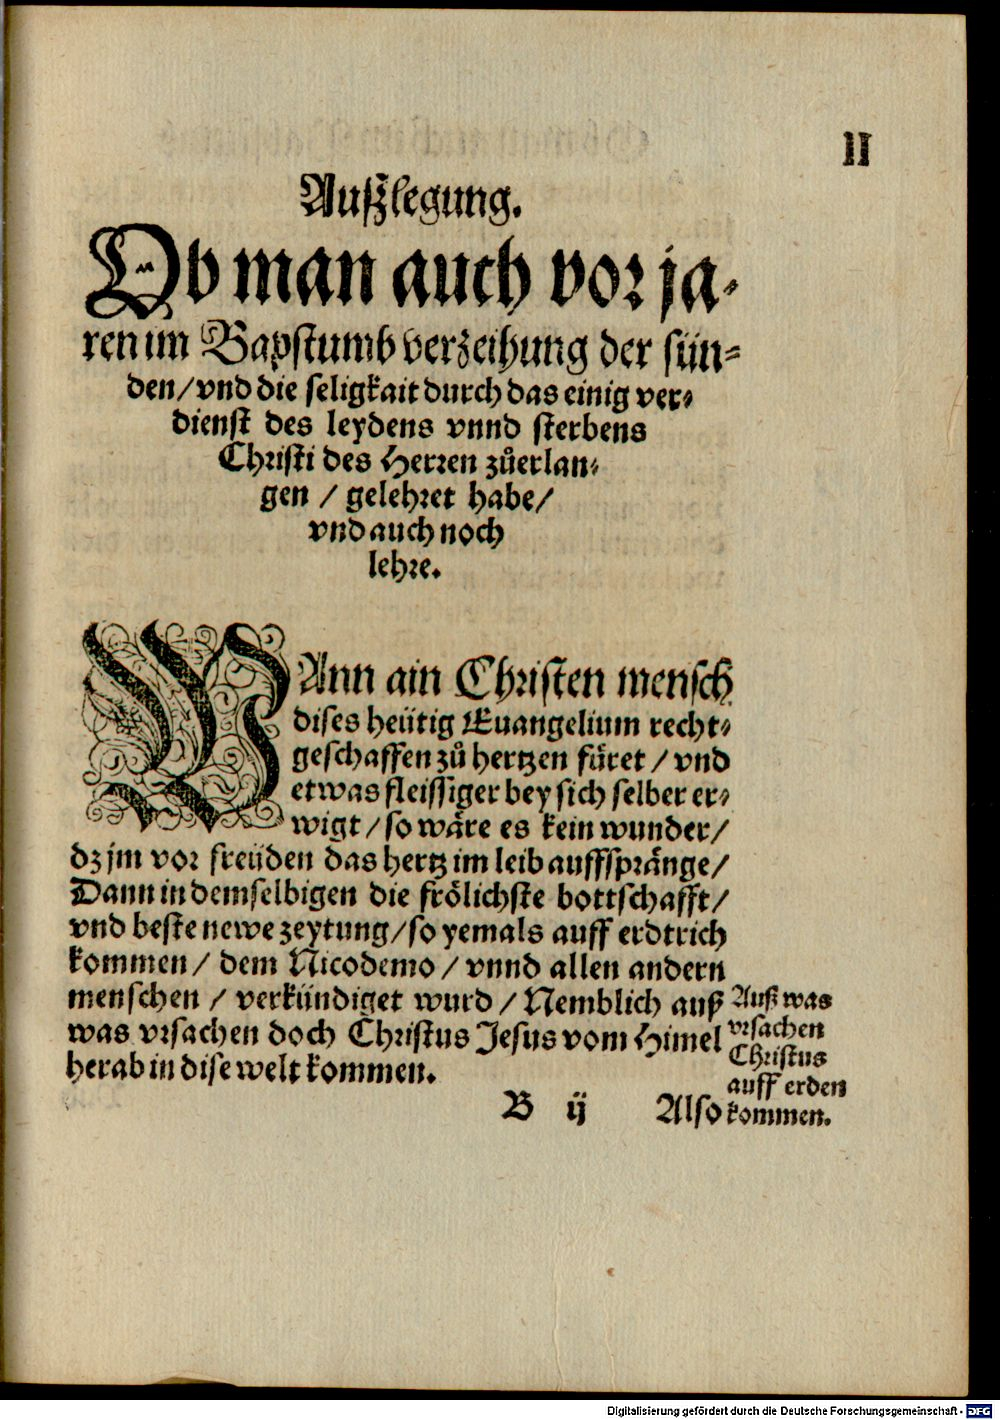 II
Außlegung.
Ob man auch vor ja-
ren im Bapstumb verzeihung der sün-
den/ vnd die seligkait durch das einig ver-
dienst des leydens vnnd sterbens
Christi des Herren zůerlan-
gen / gelehret habe/
vnd auch noch
lehre.
WAnn ain Christen mensch
dises heütig Euangelium recht-
geschaffen zů hertzen füret / vnd
etwas fleissiger bey sich selber er-
wigt / so wäre es kein wunder/
dz jm vor freüden das hertz im leib auffspränge/
Dann in demselbigen die frölichste bottschafft/
vnd beste newe zeytung/ so yemals auff erdtrich
kommen/ dem Nicodemo / vnnd allen andern
menschen / verkündiget wurd / Nemblich auß
was vrsachen doch Christus Jesus vom Himel
herab in dise welt kommen.
Auß was
vrsachen
Christus
auff erden
kommen.
B ij Also
Digitalisierung gefördert durch die Deutsche Forschungsgemeinschaft - DFG